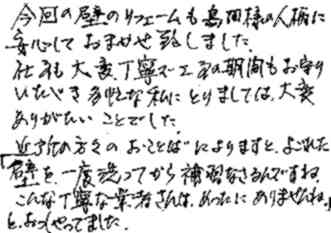 今回の壁のリフォームも島田様の人柄に
安心しておまかせ致しました。
仕事も大変丁寧で工事の期間もお守り
いただき多忙な私にとりましては、大変
ありがたいことでした。
近所の方々のおことばによりますと、よごれた
「壁を一度洗ってから補習なさるんですね
こんな丁寧な業者さんは、めったにありませんね。」
と、おっしゃってました。